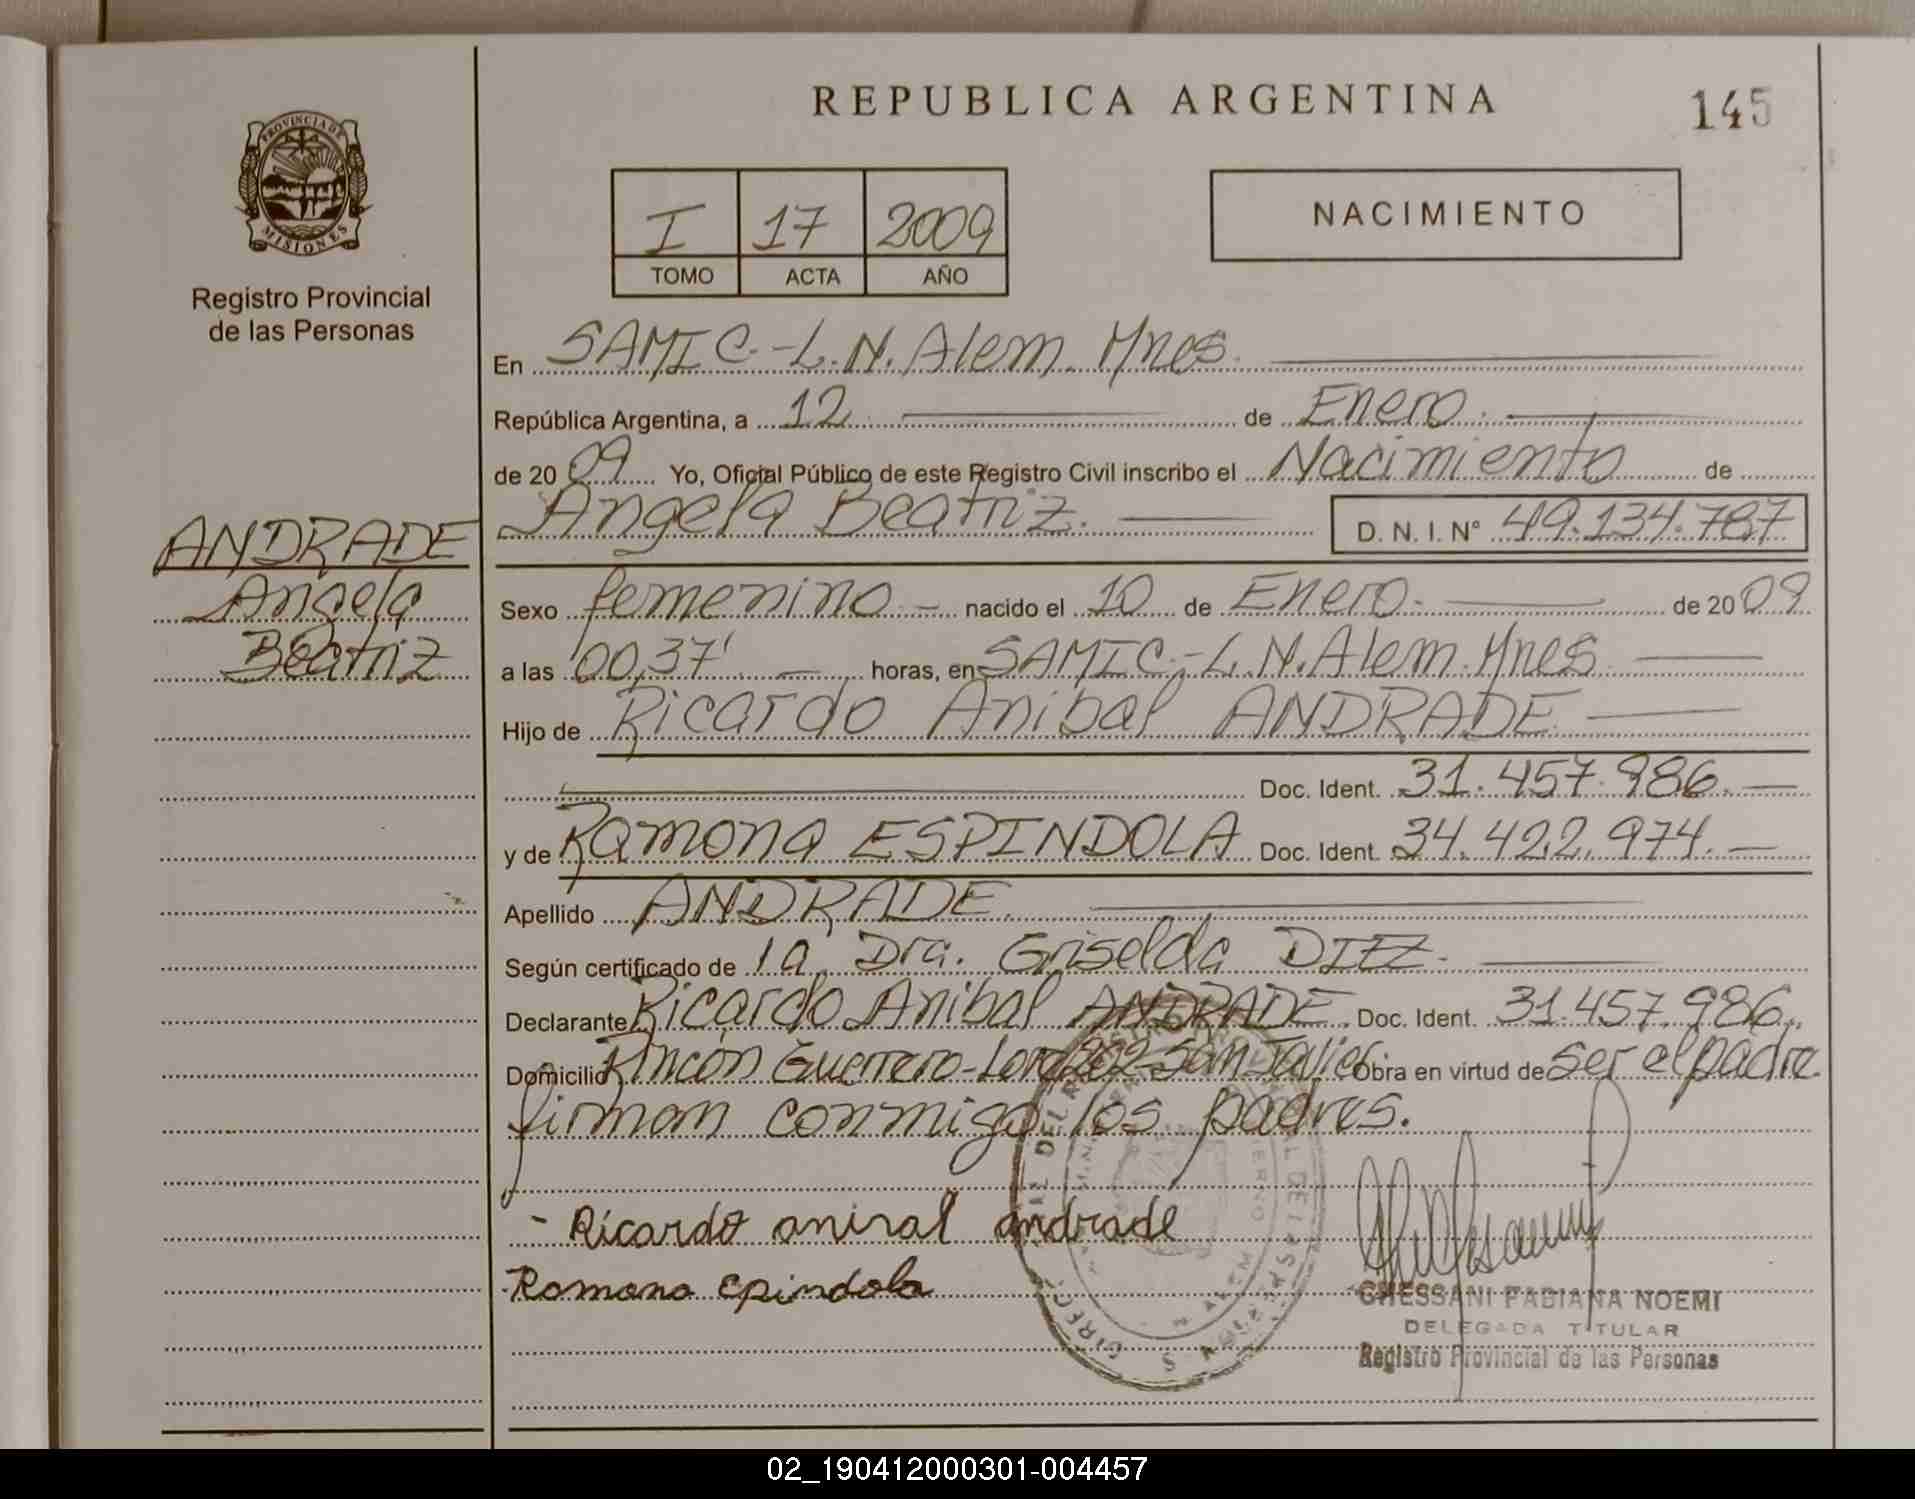 REPUBLICA ARGENTINA
145
PROVINCIA DE
MISIONES
Registro Provincial
de las Personas
I 17 2009
TOMO ACTA AÑO
NACIMIENTO
En SAMIC.-L.N.Alem. Mnes.
República Argentina, a 12 de Enero.
de 2009 Yo, Oficial Público de este Registro Civil inscribo el Nacimiento de
Angela Beatriz. D. N. I. Nº 49.134.787
ANDRADE
Angela
Beatriz
Sexo femenino - nacido el 10 de Enero. de 2009
a las 00,37' horas, en SAMIC.-L.N.Alem.Mnes
Hijo de Ricardo Anibal ANDRADE
Doc. Ident. 31.457.986.
y de Ramona ESPINDOLA Doc. Ident. 34.422.974.
Apellido ANDRADE.
Según certificado de la Dra. Griselda DIEZ.
Declarante Ricardo Anibal ANDRADE. Doc. Ident. 31.457.986.
Domicilio Rincón Guerrero- San Javier Obra en virtud de ser el padre.
firman conmigo los padres.
- Ricardo aniral andrade
Romona epindola
CHESSANI FABIANA NOEMI
DELEGADA TITULAR
Registro Provincial de las Personas
02_190412000301-004457